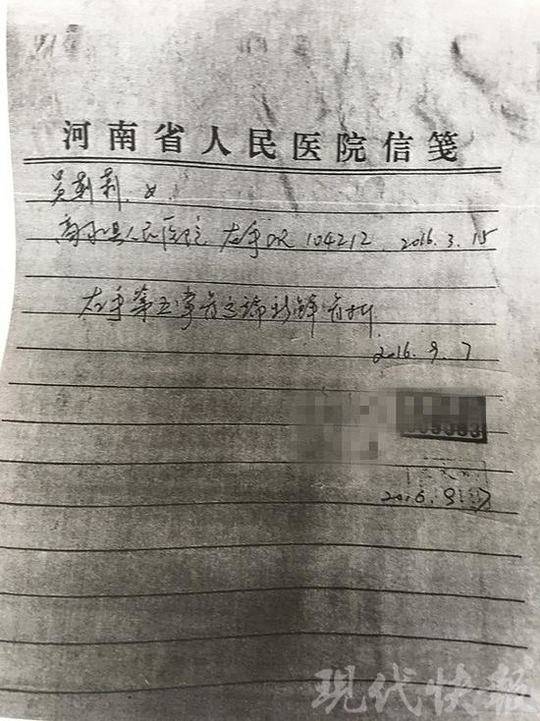 河南省人民医院信笺
吴莉莉，女
商水县人民医院 左手DR 104212 2016.3.15
左手第五掌骨远端新鲜骨折
2016.9.7
2016.9.7
现代快报